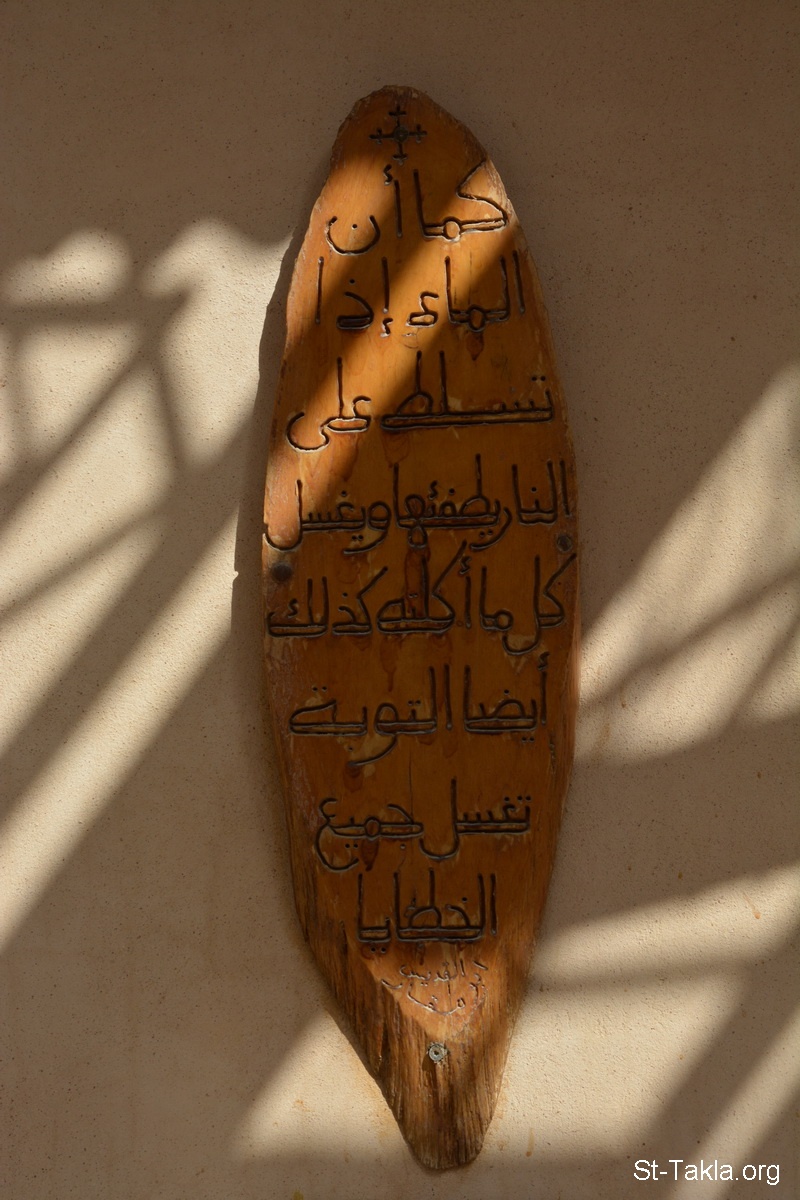 كما أن
الماء إذا
تسلط على
النار يطفئها ويغسل
كل ما أكلته كذلك
أيضا التوبة
تغسل جميع
الخطايا
القديس
St-Takla.org